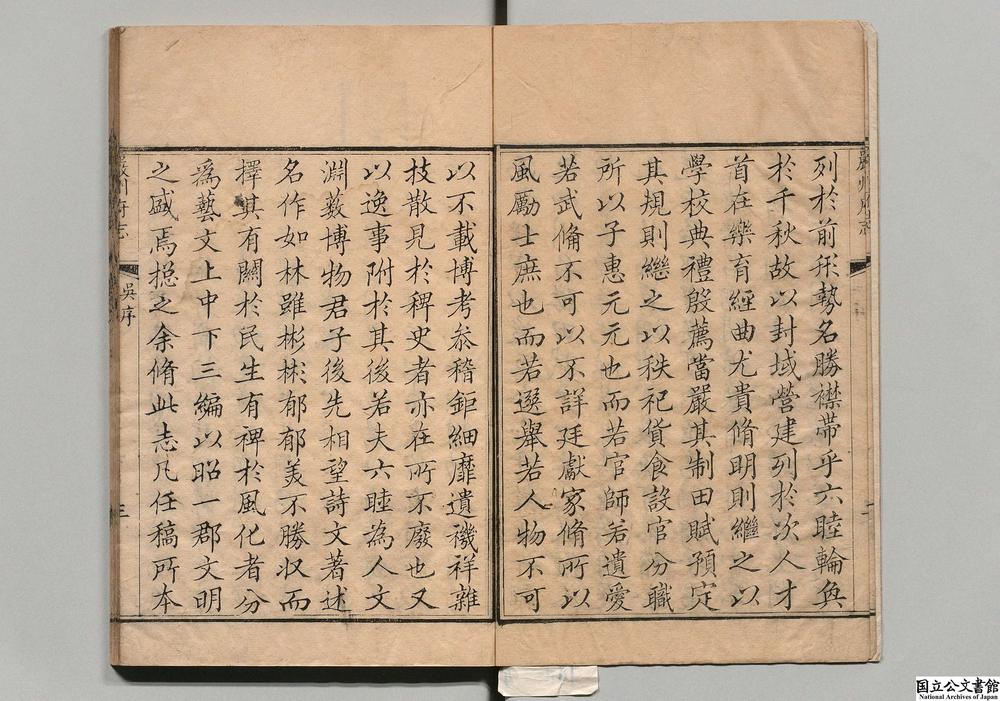 嚴州府志
二
列於前形勢名勝襟帶乎六睦輪奐
於千秋故以封域營建列於次人才
首在樂育經曲尤貴脩明則繼之以
學校典禮殷薦當嚴其制田賦預定
其規則繼之以秩祀貨食設官分職
所以子惠元元也而若官師若遺愛
若武僃不可以不詳廷獻家脩所以
風勵士庶也而若選舉若人物不可
以不載博考叅稽鉅細靡遺禨祥雜
技散見於稗史者亦在所不廢也又
以逸事附於其後若夫六睦為人文
淵薮博物君子後先相望詩文著述
名作如林雖彬彬郁郁美不勝収而
擇其有關於民生有裨於風化者分
爲藝文上中下三編以昭一郡文明
之盛焉揔之余脩此志凡任稿所本
嚴州府志
吳序
三
国立公文書館
National Archives of Japan